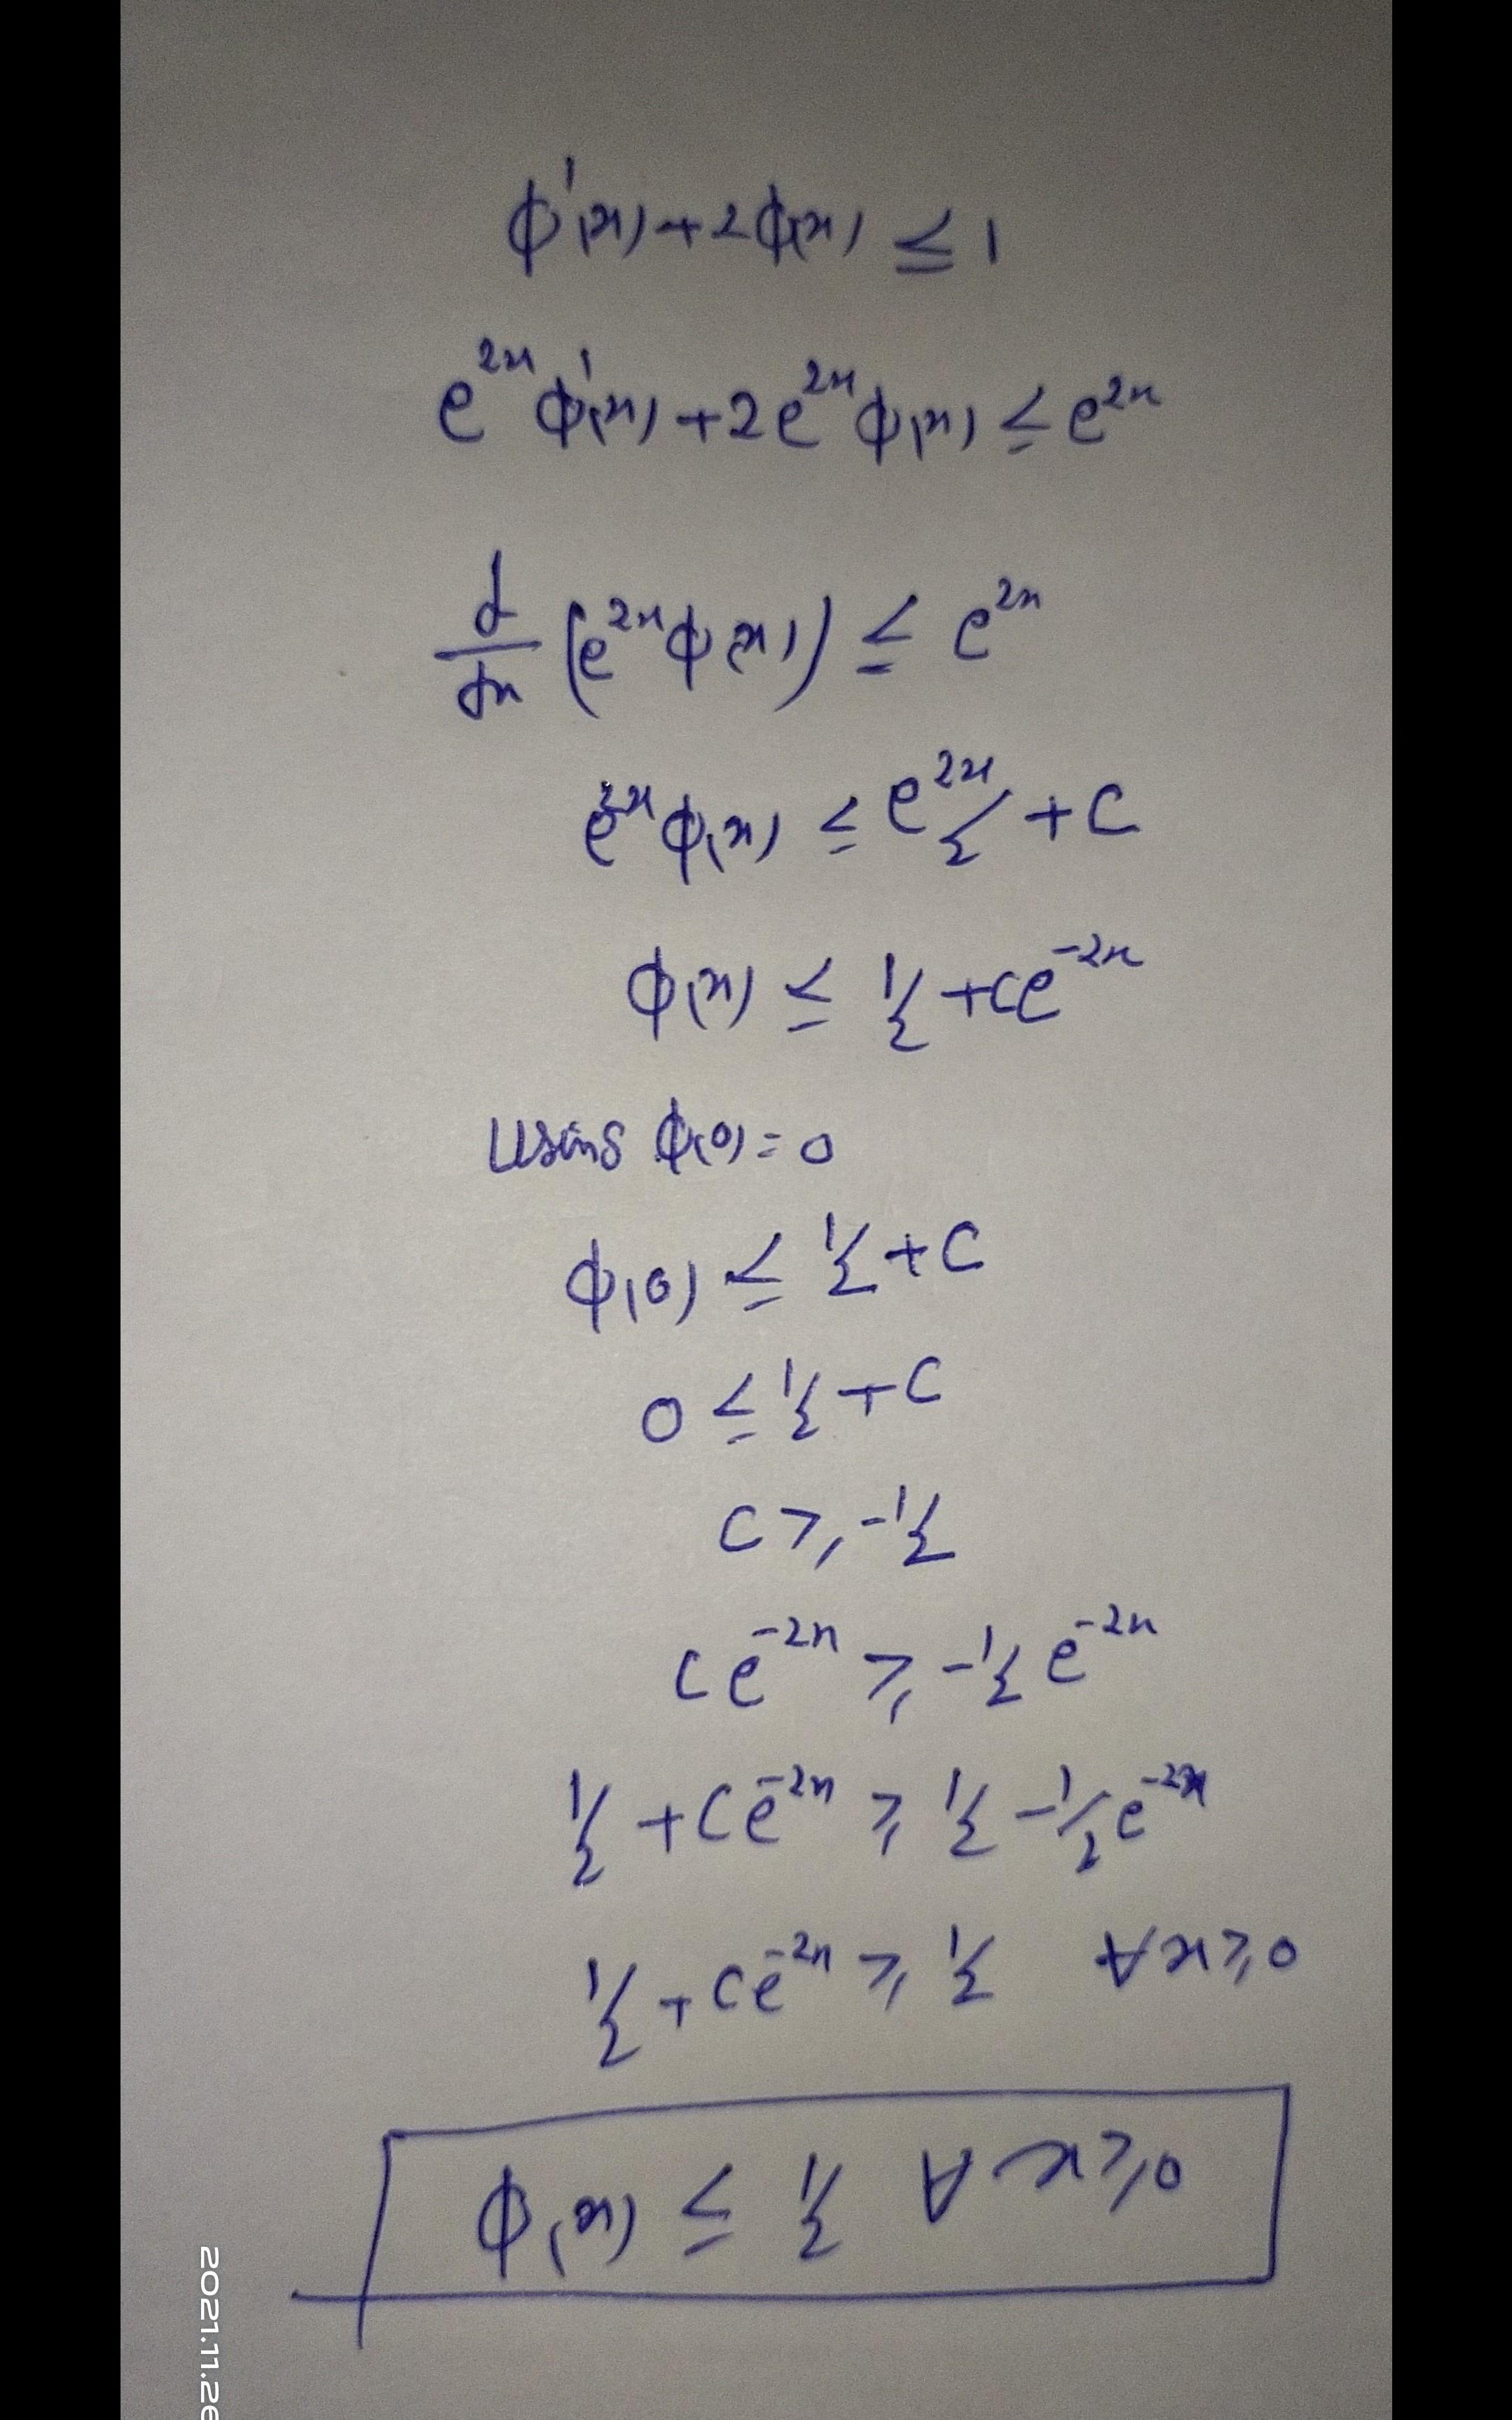 ϕ'(x) + 2ϕ(x) ≤ 1
e^{2x} ϕ'(x) + 2e^{2x} ϕ(x) ≤ e^{2x}
d/dx (e^{2x} ϕ(x)) ≤ e^{2x}
e^{2x} ϕ(x) ≤ e^{2x}/2 + C
ϕ(x) ≤ 1/2 + Ce^{-2x}
Using ϕ(0) = 0
ϕ(0) ≤ 1/2 + C
0 ≤ 1/2 + C
C ≥ -1/2
Ce^{-2x} ≥ -1/2 e^{-2x}
1/2 + Ce^{-2x} ≥ 1/2 - 1/2 e^{-2x}
1/2 + Ce^{-2x} ≥ 1/2 ∀ x ≥ 0
ϕ(x) ≤ 1/2 ∀ x ≥ 0
2021.11.26